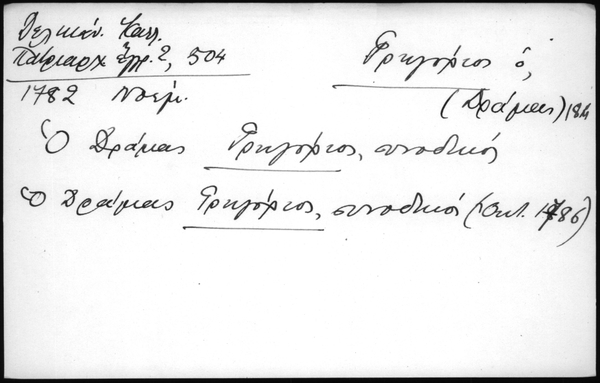 Δελικάν. Καλλ.
Πατριαρχ. Ἔγγρ. 2, 504
1782 Νοεμ.
Γρηγόριος ὁ,
(Δράμας) 18ος
Ὁ Δράμας Γρηγόριος, συνοδικός
Ὁ Δράμας Γρηγόριος, συνοδικός (Ὀκτ. 1786)